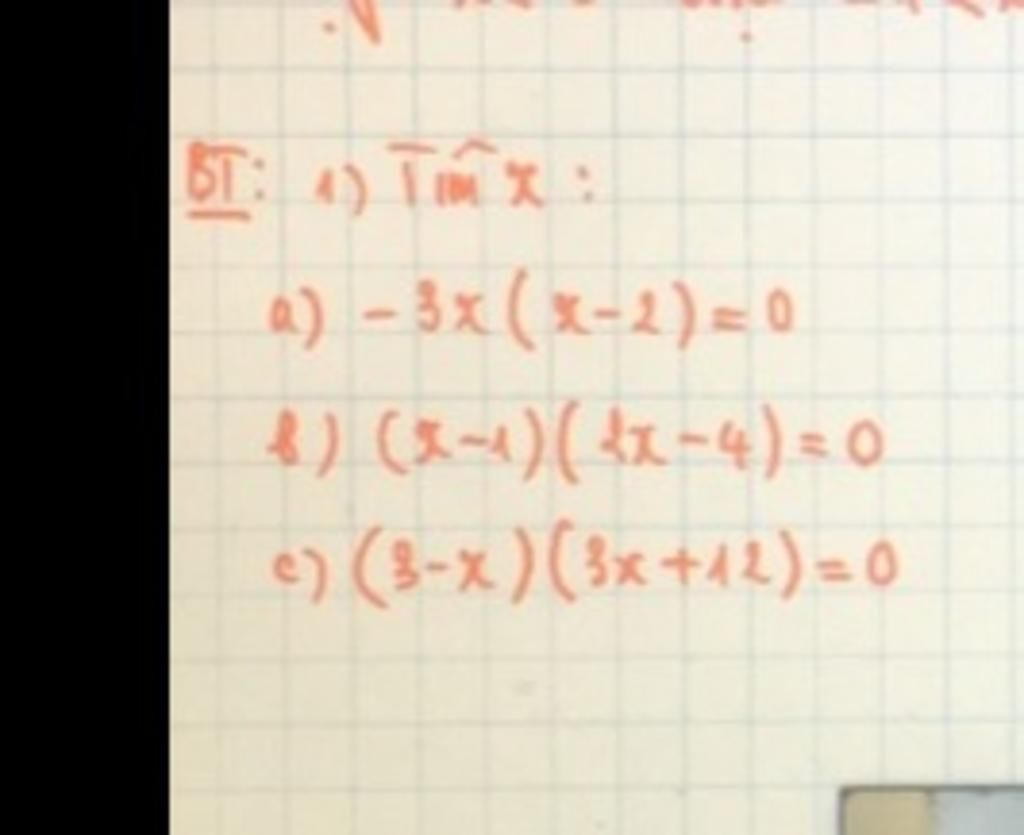 BT: 1) Tìm x :
a) - 3x ( x - 2 ) = 0
b) (x - 1)( 2x - 4) = 0
c) (3 - x )(3x + 12) = 0